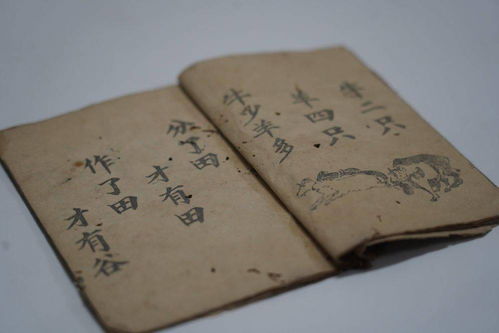 牛二只
羊四只
牛少羊多
分了田
才有田
作了田
才有谷